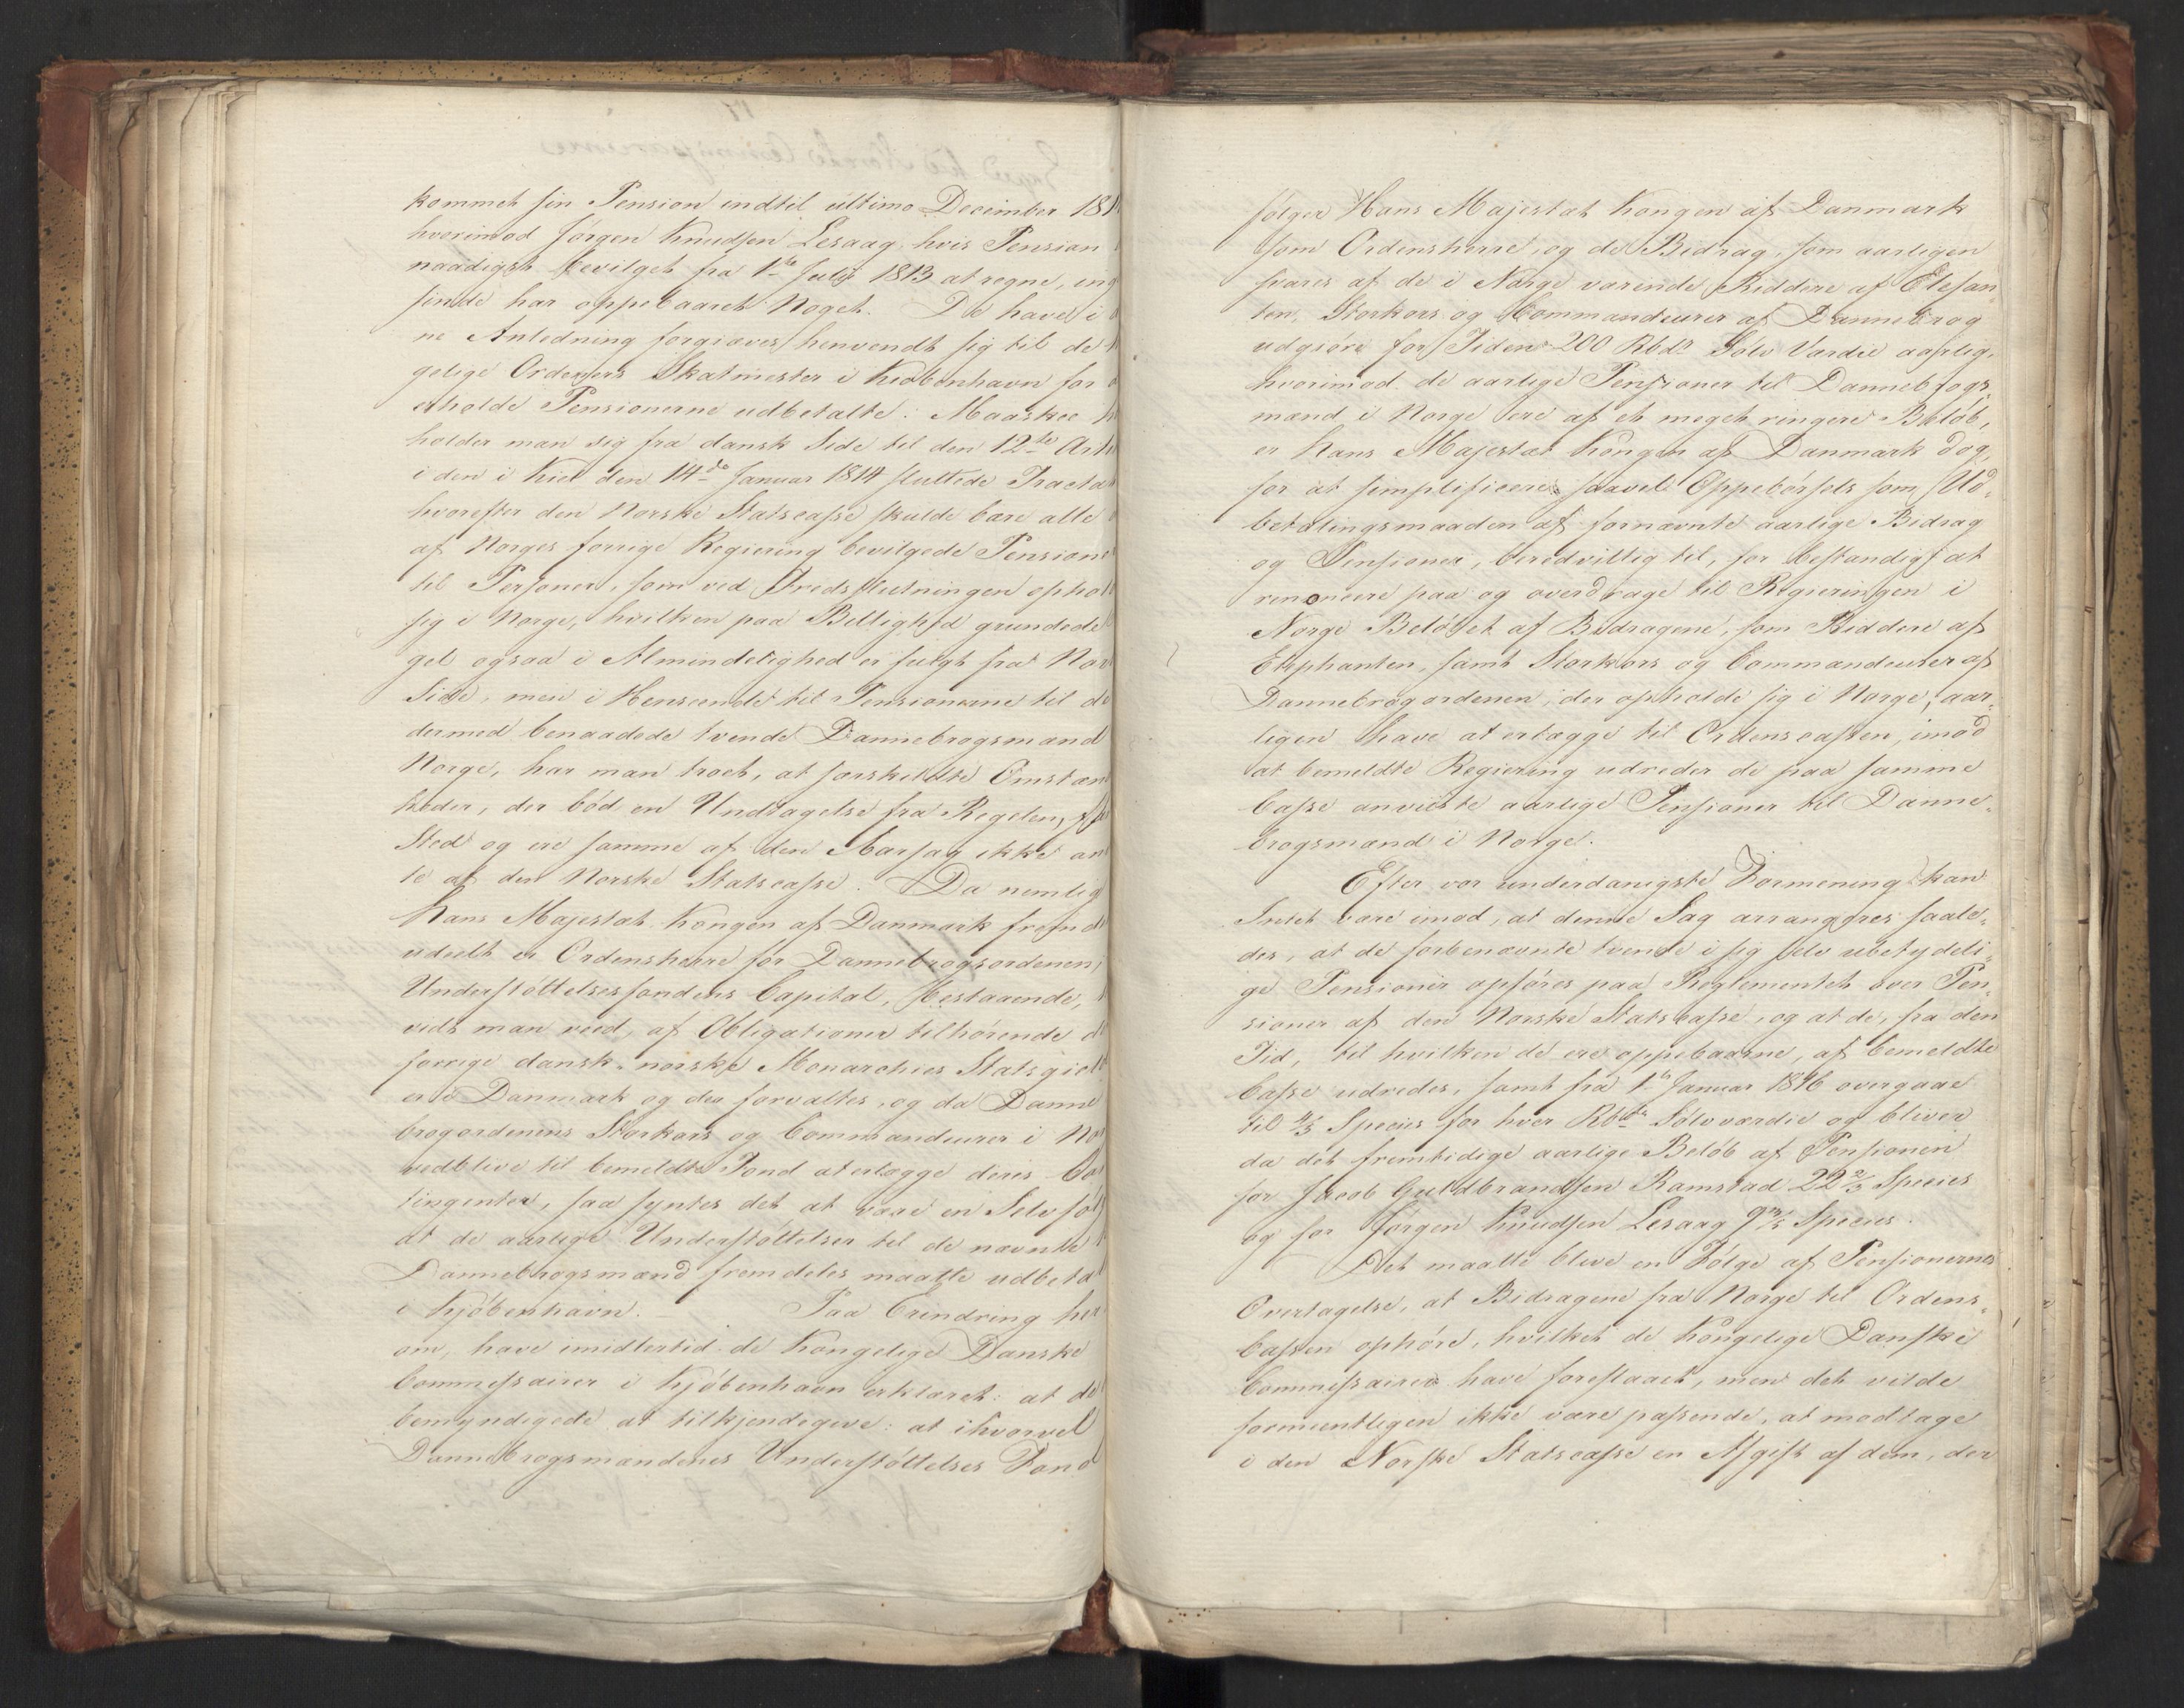 kommet sin Pension indtil ultimo December 181
hvorimod Jörgen Knudsen Lesaag, hvis Pension
naadigst bevilget fra 1ste July 1813 at regne, ing
sinde har oppebaaret Noget. De have i
ne Anledning forgiæves henvendt sig til de
gelige Ordeners Skatmester i Kiøbenhavn for
erholde Pensionerne udbetalte. Maaskee
holder man sig fra dansk Side til den 12te Arti
i den i Kiel den 14de Januar 1814 sluttede Tracta
hvorefter den Norske Statscasse skulde bære alle
af Norges forrige Regiering bevilgede Pensione
til Personer, som ved Fredsslutningen ophol
sig i Norge, hvilken paa Billighed grundede
gel ogsaa i Almindelighed er fulgt fra Nor
Side, men i Henseende til Pensionerne til de
dermed benaadede tvende Dannebrogsmænd
Norge, har man troet, at særskildte Omstæn
heder, der bød en Undtagelse fra Regelen,
Sted og ere samme af den Aarsag ikke an
te af den Norske Statscasse. Da nemlig
Hans Majestæt Kongen af Danmark fremde
udeelt er Ordensherre for Dannebrogsordenen,
Understöttelsesfondens Capital, bestaaende,
vidt man veed, af Obligationer tilhørende d
forrige dansk-norske Monarchies Statsgield
er i Danmark og der forvaltes, og da Danne
brogordenens Storkors og Commandeurer i Nor
vedblive til bemeldte Fond at erlægge deres Con
tingenter, saa syntes det at være en Selvføl
at de aarlige Understøttelser til de nævnte
Dannebrogsmænd fremdeles maatte udbeta
i Kjøbenhavn. Paa Erindring her
om, have imidlertid de Kongelige Danske
Commissairer i Kjøbenhavn erklæret: at de
bemyndigede at tilkjendegive: at ihvorvel
Dannebrogsmændenes Understøttelses Fond
følger Hans Majestæt Kongen af Danmark
som Ordensherre, og de Bidrag, som aarligen
svares af de i Norge værende Riddere af Elefan
ten, Storkors og Commandeurer af Dannebrog
udgiöre for Tiden 200 Rbdr Sölv Værdie aarlig,
hvorimod de aarlige Pensioner til Dannebrogs,
mænd i Norge ere af et meget ringere Beløb,
er Hans Majestæt Kongen af Danmark dog,
for at simplificere saavel Oppebørsels som Ud,
betalingsmaaden af fornævnte aarlige Bidrag
og Pensioner, beredvillig til, for bestandigt at
renoncere paa og overdrage til Regieringen i
Norge Beløbet af Bidragene, som Riddere af
Elephanten, samt Storkors og Commandeurer af
Dannebrogordenen, der opholde sig i Norge, aar,
ligen have at erlægge til Ordenscassen, imod
at bemeldte Regiering udreder de paa samme
Casse anviiste aarlige Pensioner til Danne,
brogsmænd i Norge.
Efter vor underdanigste Formening kan
Intet være imod, at denne Sag arrangeres saale,
des, at de forbenævnte tvende i sig selv ubetydeli,
ge Pensioner opføres paa Reglementet over Pen,
sioner af den Norske Statscasse, og at de, fra den
Tid, til hvilken de ere oppebaarne, af bemeldte
Casse udredes, samt fra 1ste Januar 1816 overgaae
til 4/5 Species for hver Rbdr Sølvværdie og bliver
da det fremtidige aarlige Beløb af Pensionen
for Jacob Guldbrandsen Ramstad 22 2/5 Species
og for Jörgen Knudsen Lesaag 9 3/5 Species.
Det maatte blive en Følge af Pensionernes
Overtagelse, at Bidragene fra Norge til Ordens,
Cassen ophöre, hvilket de Kongelige Danske
Commissairer have foreslaaet, men det vilde
formeentligen ikke være passende, at modtage
i den Norske Statscasse en Afgift af dem, der